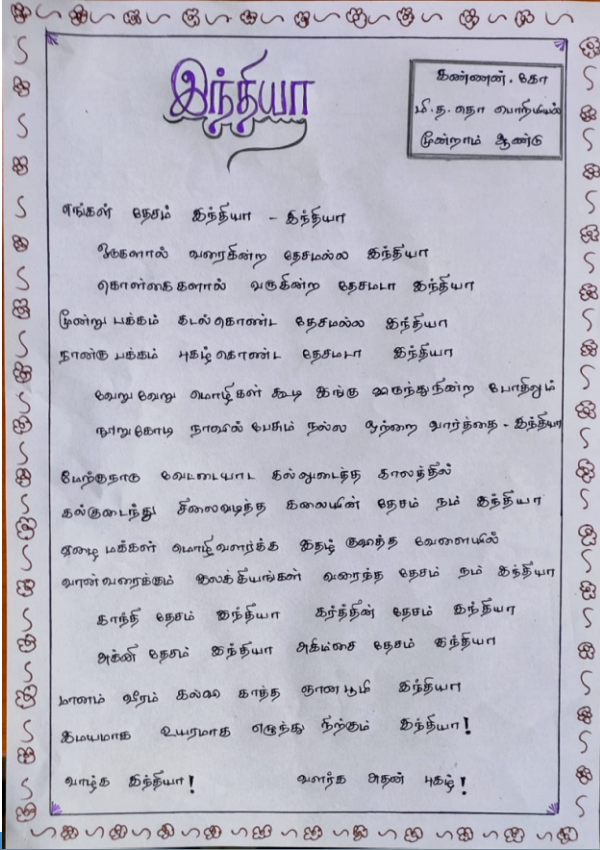 இந்தியா
கண்ணன். கோ
மி.த.தொ பொறியியல்
மூன்றாம் ஆண்டு
எங்கள் தேசம் இந்தியா - இந்தியா
வரைகின்ற தேசமல்ல இந்தியா
கொள்கைகளால் வருகின்ற தேசமடா இந்தியா
மூன்று பக்கம் கடல்கொண்ட தேசமல்ல இந்தியா
நான்கு பக்கம் புகழ்கொண்ட தேசமடா இந்தியா
வேறுவேறு மொழிகள் கூடி இங்கு இருந்துநின்ற போதிலும்
நூறுகோடி நாவில் பேசும் நல்ல ஒற்றை வார்த்தை - இந்தியா
மேற்குநாடு வேட்டையாட கல்லுடைத்த காலத்தில்
கல்குடைந்து சிலைவடித்த கலையின் தேசம் நம் இந்தியா
ஏனை மக்கள் மொழிவளர்க்க இதழ் குவித்த வேளையில்
வான்வரைக்கும் இலக்கியங்கள் வரைந்த தேசம் நம் இந்தியா
காந்தி தேசம் இந்தியா கர்த்தின் தேசம் இந்தியா
அக்னி தேசம் இந்தியா அகிம்சை தேசம் இந்தியா
மானம் வீரம் கல்வி காத்த ஞானபூமி இந்தியா
இமயமாக உயரமாக எழுந்து நிற்கும் இந்தியா!
வாழ்க இந்தியா! வளர்க அதன் புகழ்!